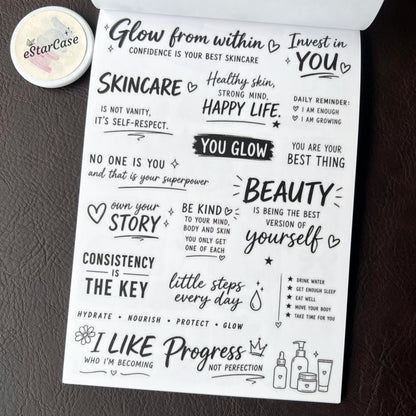 eStarCase
Glow from within
CONFIDENCE IS YOUR BEST SKINCARE
Invest in
YOU
SKINCARE
IS NOT VANITY,
IT'S SELF-RESPECT.
Healthy skin,
STRONG MIND,
HAPPY LIFE.
DAILY REMINDER:
I AM ENOUGH
I AM GROWING
YOU GLOW
YOU ARE YOUR
BEST THING
NO ONE IS YOU
and that is your superpower
BEAUTY
IS BEING THE BEST
VERSION OF
yourself
own your
STORY
BE KIND
TO YOUR MIND,
BODY AND SKIN
YOU ONLY GET
ONE OF EACH
CONSISTENCY
IS
THE KEY
little steps
every day
DRINK WATER
GET ENOUGH SLEEP
EAT WELL
MOVE YOUR BODY
TAKE TIME FOR YOU
HYDRATE • NOURISH • PROTECT • GLOW
I LIKE Progress
WHO I'M BECOMING
NOT PERFECTION